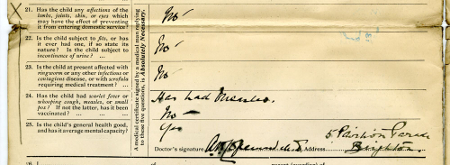 21. Has the child any affections of the
limbs, joints, skin, or eyes which
may have the effect of preventing
it from entering domestic service?
No
22. Is the child subject to fits, or has
it ever had one, if so state its
nature? Is the child subject to
incontinence of urine?
No
23. Is the child at present affected with
ringworm or any other infectious or
contagious disease, or with scrofula
requiring medical treatment?
No
24. Has the child had scarlet fever or
whooping cough, measles, or small
pox? If not the latter, has it been
vaccinated?
Has had Measles.
No
25. Is the child's general health good,
and has it average mental capacity?
Yes
A medical certificate signed by a medical man replying
to these five questions, is Absolutely Necessary.
Doctor's signature
Address
5 Parade
Brighton